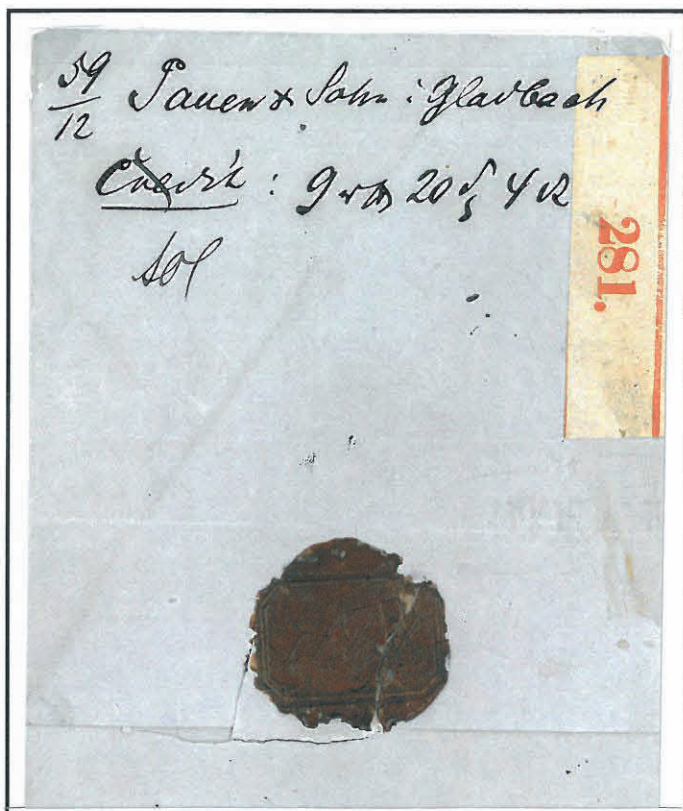 59
12 Pauen & Sohn i. Gladbach
Credit : 9 20 4
281.